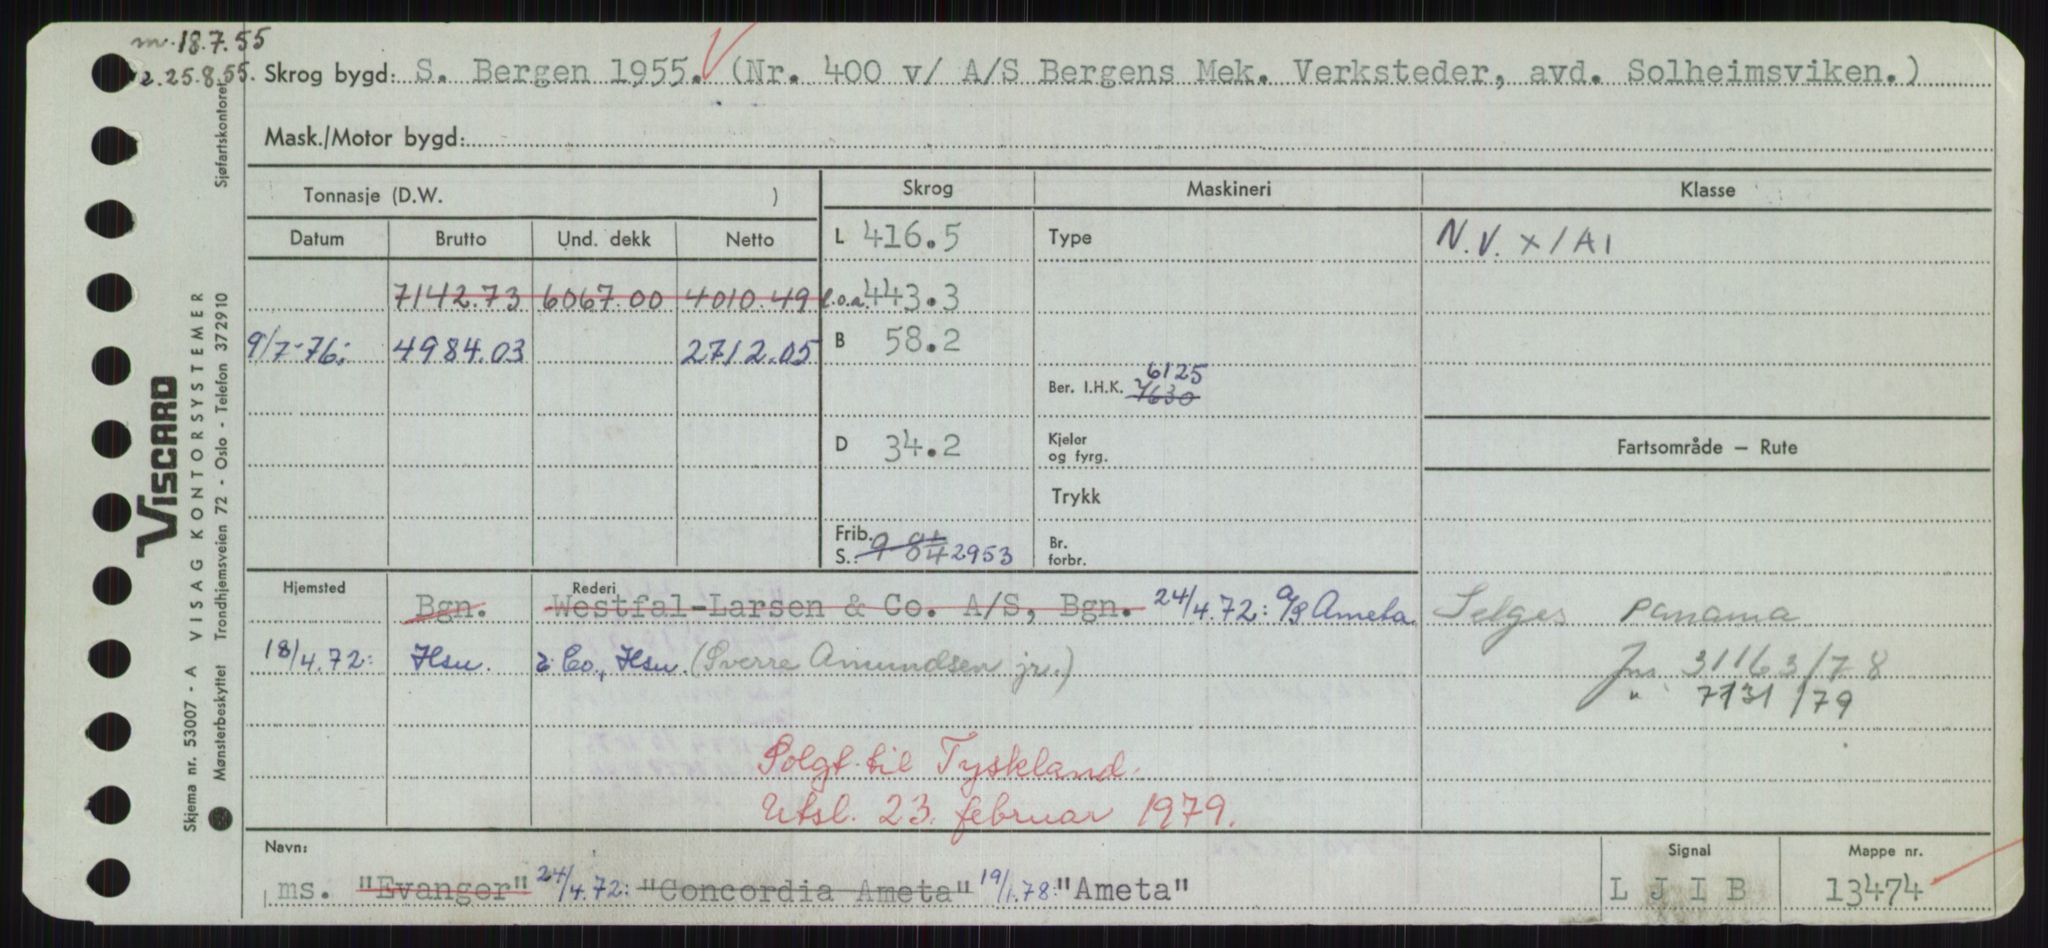 m. 18.7.55
2. 25.8.55. Skrog bygd: S. Bergen 1955. (Nr. 400 v/ A/S Bergens Mek. Verksteder, avd. Solheimsviken.)
Mask./Motor bygd:
Tonnasje (D.W. ) Skrog Maskineri Klasse
Datum Brutto Und. dekk Netto L 416.5 Type N.V. X/A1
7142.73 6067.00 4010.49 l.o.a. 443.3
9/7-76: 4984.03 2712.05 B 58.2
6125
Ber. I.H.K. 7630
D 34.2 Kjeler Fartsområde – Rute
og fyrg.
Trykk
Frib. Br.
S.: 9 8 1/4 2953 forbr.
Hjemsted Rederi
Bgn. Westfal-Larsen & Co. A/S, Bgn. 24/4.72: A/S Ameta Selges Panama
18/4.72: Hsu. & Co., Hsu. (Sverre Amundsen jr.) Jns. 31163/78
" 7131/79
Solgt til Tyskland.
Utsl. 23. februar 1979.
Navn: Signal Mappe nr.
ms. "Evanger" 24/4.72: "Concordia Ameta" 19/1.78: "Ameta" L J I B 13474
VISCARD
Skjema nr. 53007 - A VISAG KONTORSYSTEMER
Mønsterbeskyttet Trondhjemsveien 72 - Oslo - Telefon 372910
Sjøfartskontoret